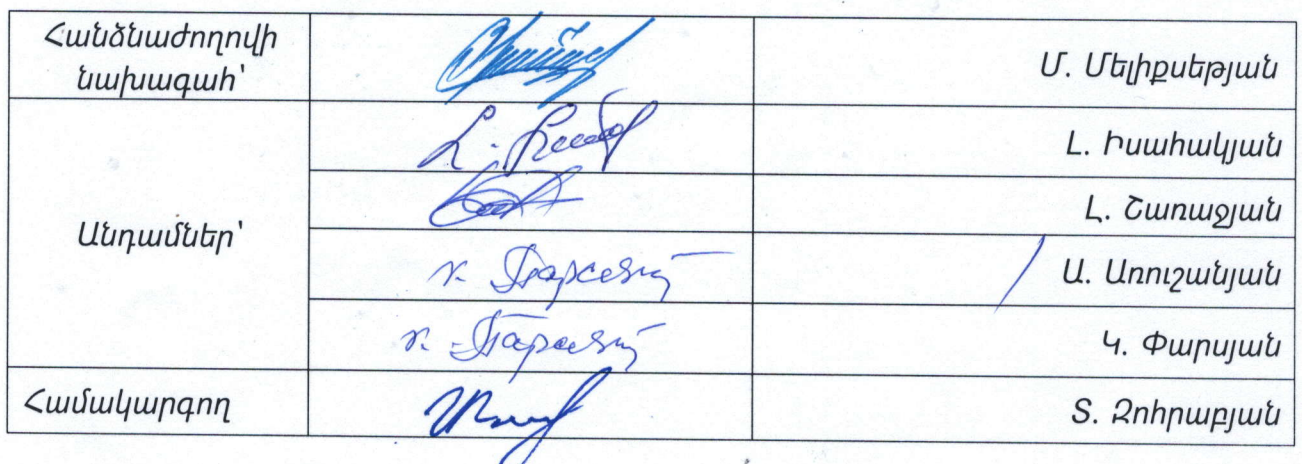 Հանձնաժողովի
նախագահ՝
Մ. Մելիքսեթյան
Լ. Իսահակյան
Անդամներ՝
Հ. Շառաջյան
Ա. Առուշանյան
Կ. Փարսյան
Համակարգող
Տ. Զոհրաբյան